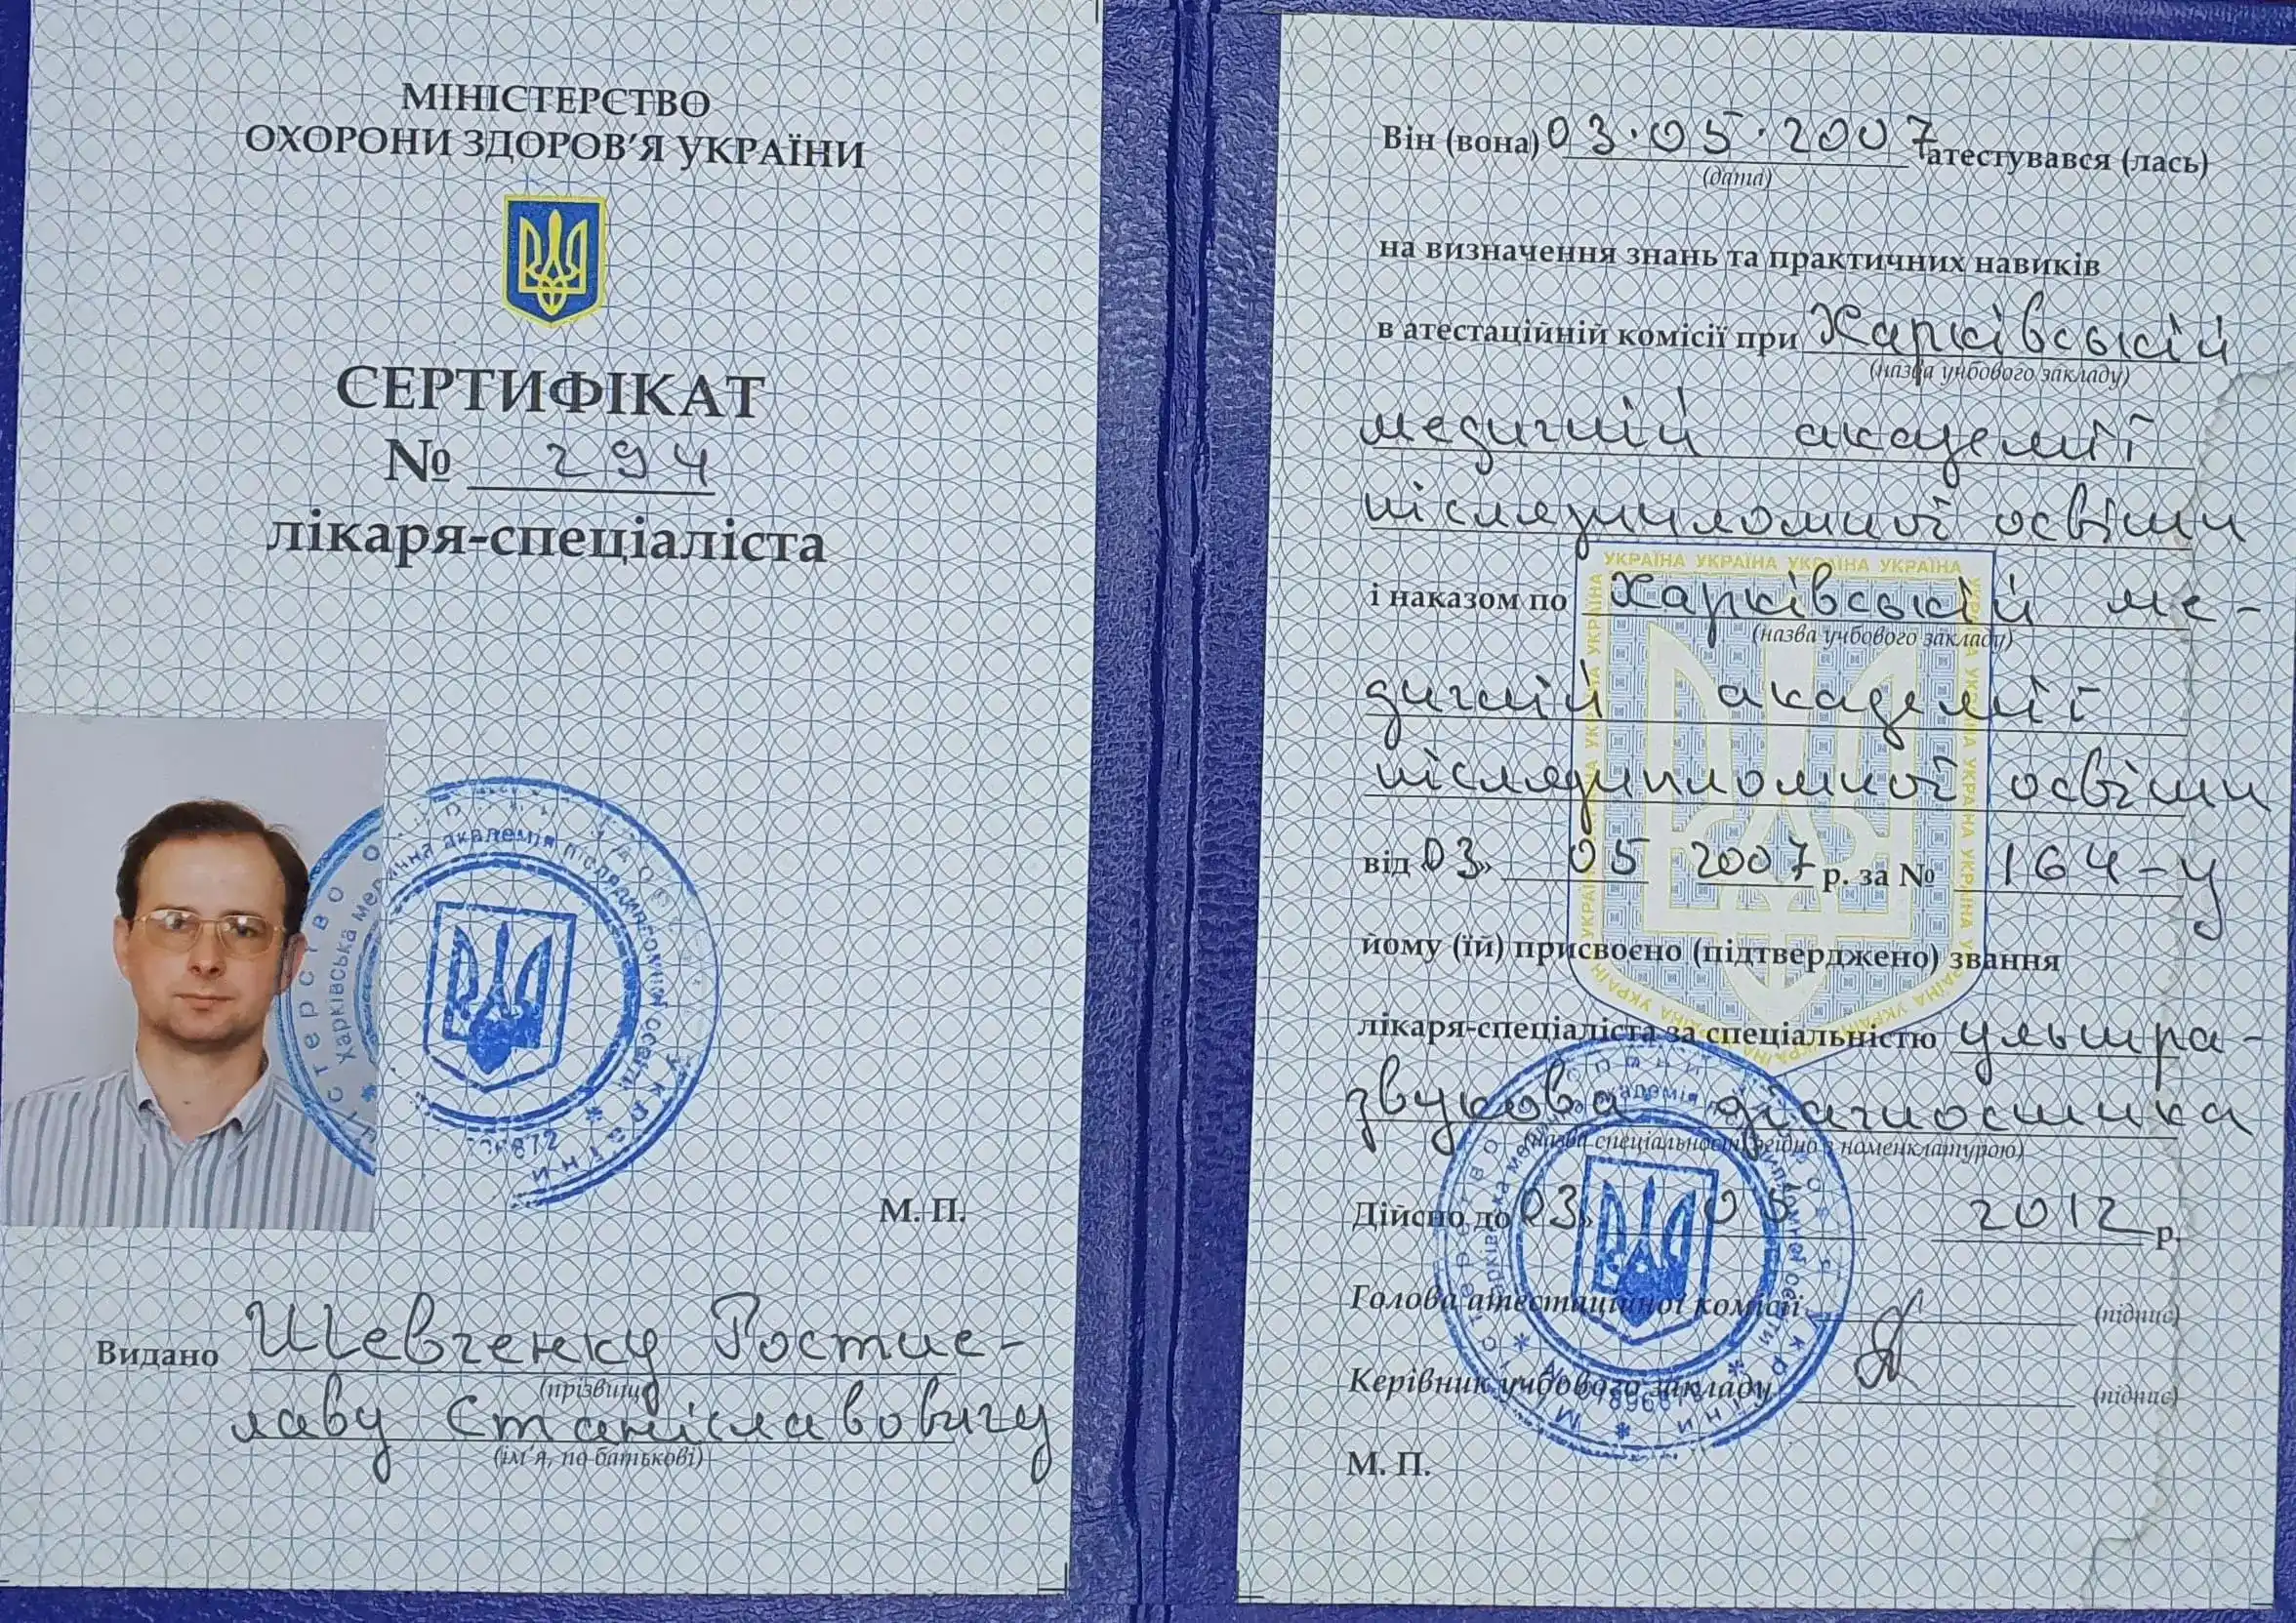 МІНІСТЕРСТВО
ОХОРОНИ ЗДОРОВ'Я УКРАЇНИ
СЕРТИФІКАТ
№ 294
лікаря-спеціаліста
Харківська медична академія післядипломної освіти
України
М. П.
Видано Шевченку Ростис-
(прізвище)
лаву Станіславовичу
(ім'я, по батькові)
Він (вона) 03.05.2007 атестувався (лась)
(дата)
на визначення знань та практичних навиків
в атестаційній комісії при Харківській
(назва учбового закладу)
медичній академії
післядипломної освіти
УКРАЇНА УКРАЇНА УКРАЇНА УКРАЇНА
і наказом по Харківській ме-
(назва учбового закладу)
дичній академії
післядипломної освіти
від 03» 05 2007 р. за № 164-у
йому (їй) присвоєно (підтверджено) звання
лікаря-спеціаліста за спеціальністю ультра-
звукова діагностика
(назва спеціальності згідно з номенклатурою)
Дійсно до 03» 05 2012 р.
Голова атестаційної комісії (підпис)
Керівник учбового закладу (підпис)
М. П.